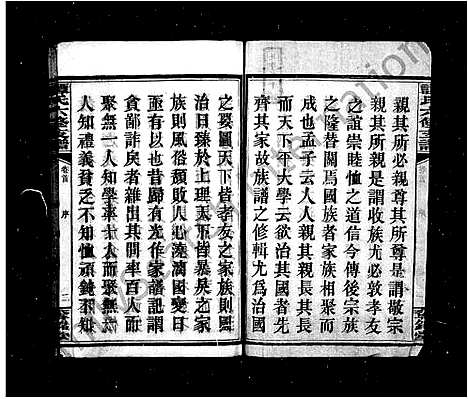 親其所必親尊其所尊是謂敬宗
親其所親是謂收族尤必敦孝友
之誼崇睦恤之道信今傳後宗族
之隆替關焉國族者家族相聚而
成也孟子云人人親其親長其長
而天下平大學云欲治其國者先
齊其家故族譜之修輯尤爲治國
之要圖天下皆孝友之家族則國
治日臻於上理天下皆暴戾之家
族則風俗頹敗人心澆漓國變日
亟有以也昔歸有光作家譜記謂
貪鄙詐戾者雜出其間率百人而
聚無一人知學率十人而聚無一
人知禮義貧乏不知恤頑鈍不知
譚氏六修支譜
卷首
序
三